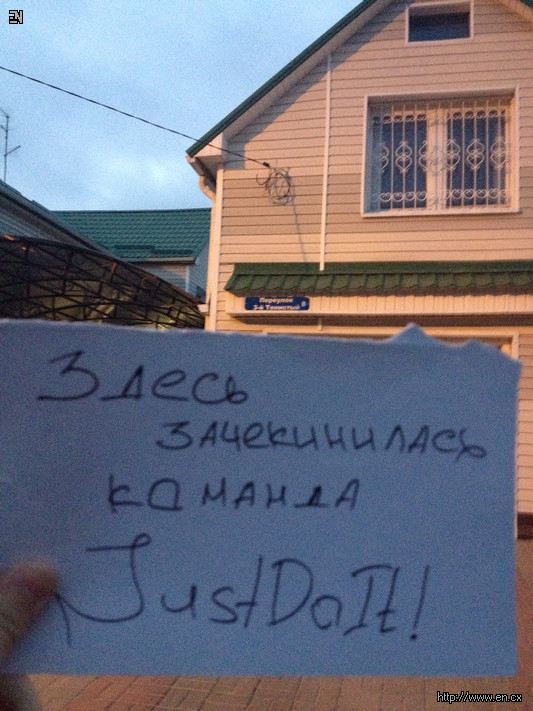 EN
Переулок
3-й Тенистый 8
Здесь
зачекинилась
команда
JustDoIt!
http://www.en.cx